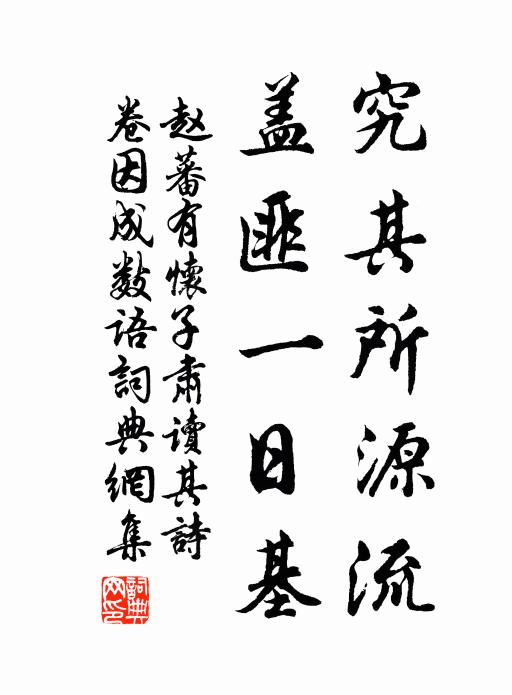 究其所源流
盖匪一日基
赵蕃有懷子肃讀其詩
卷因成数语詞典網集
詞典网印